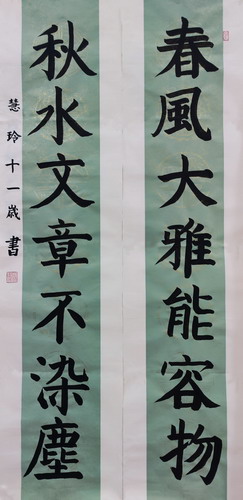 春風大雅能容物
秋水文章不染塵
慧玲十一歲書